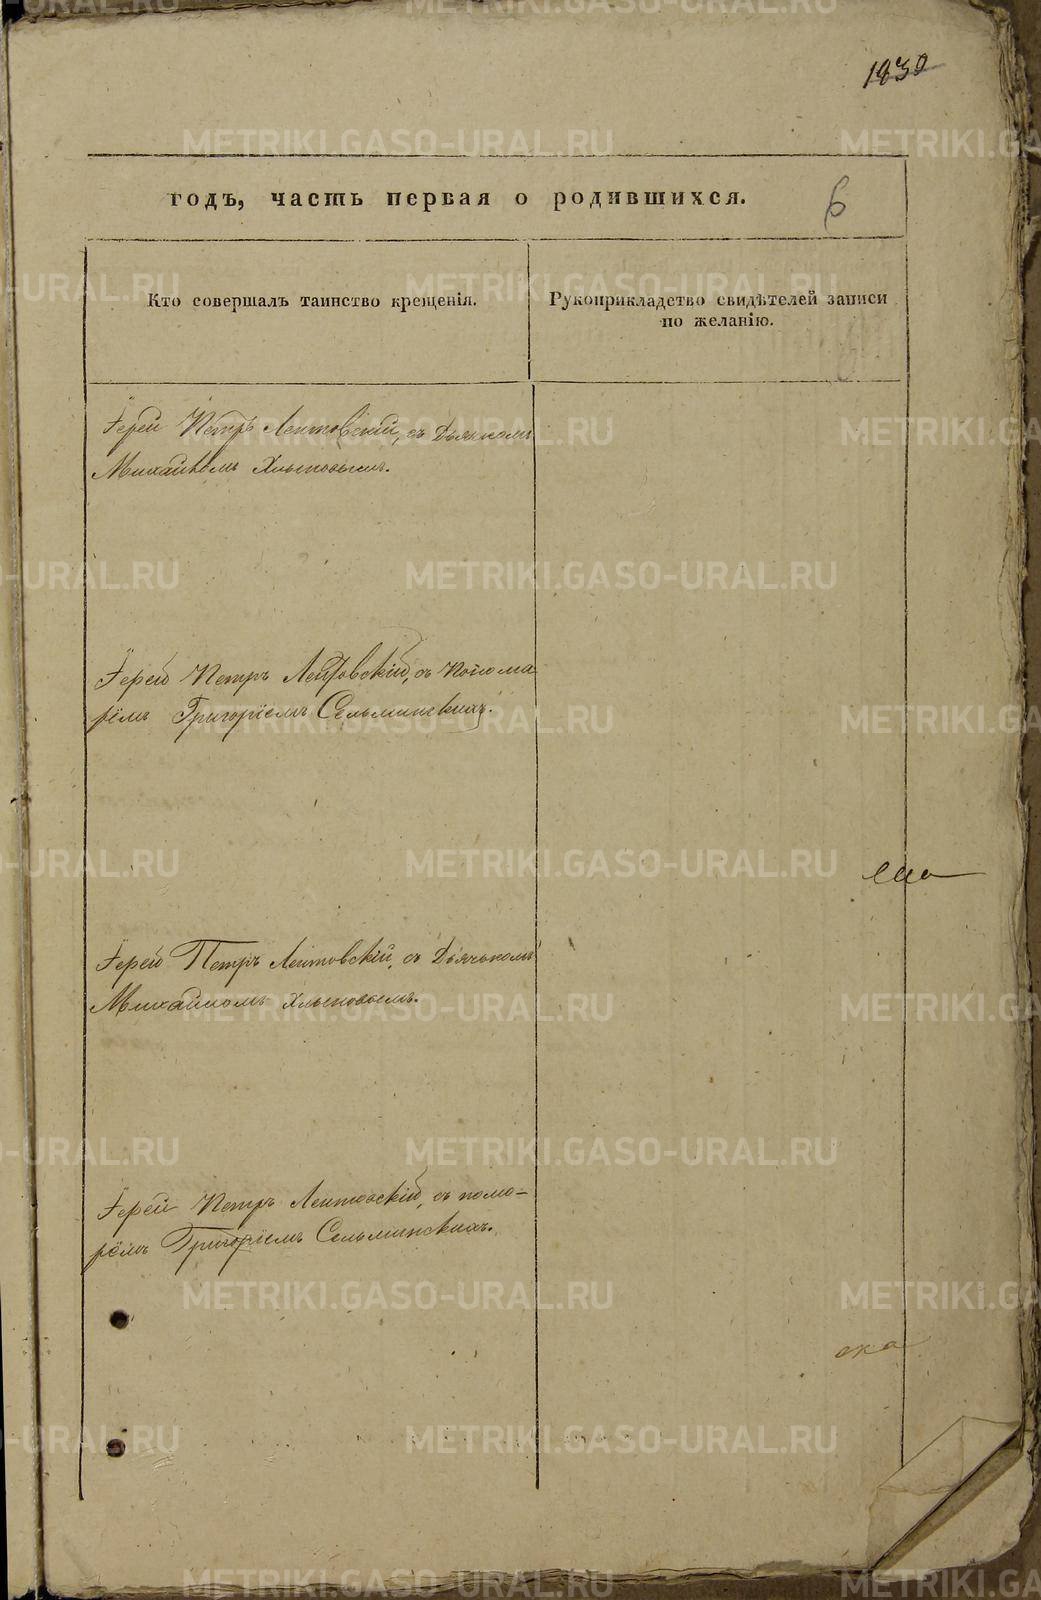 1830
годъ, часть первая о родившихся.
6
Кто совершалъ таинство крещенія.
Рукоприкладство свидѣтелей записи
по желанію.
Іерей Петръ Лентовскій, съ Дьячкомъ
Михайломъ Хлыновымъ.
Іерей Петръ Лентовскій, съ Поно ма
рёмъ Григоріемъ Сельминскихъ.
Іерей Петръ Лентовскій, съ Дьячькомъ
Михайломъ Хлыновымъ.
Іерей Петръ Лентовскій, съ помо-
рёмъ Григоріемъ Сельминскихъ.
METRIKI.GASO-URAL.RU